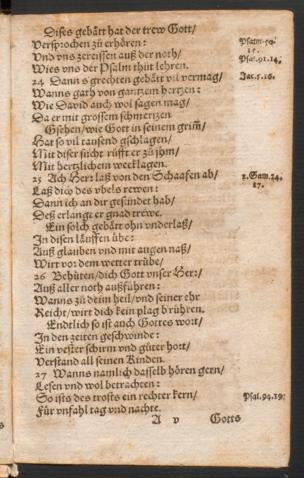 Dises gebätt hat der trew Gott/
Versprochen zů erhören:
Vnd vns zereissen auß der noth/
Wies vns der Psalm thůt lehren.
24 Dann s grechten gebätt vil vermag/
Wanns gath von gantzem hertzen:
Wie David auch wol sagen mag/
Da er mit grossem schmertzen
Gsehen/wie Gott in seinem grim̃/
Hat so vil tausend gschlagen/
Mit diser sücht růfft er zů jhm/
Mit hertzlichem weeklagen.
25 Ach Herr laß von den Schaafen ab/
Laß dich des vbels rewen:
Dann ich an dir gesündet hab/
Deß erlange er gnad trewe.
Ein solch gebätt ohn vnderlaß/
In disen läuffen übe:
Auß glauben vnd mit augen naß/
Wirt vor dem wetter trübe/
26 Behüten/dich Gott vnser Herr/
Auß aller noth außführen:
Wanns zů deim heil/vnd seiner ehr
Reicht/wirt dich kein plag brühren.
Endtlich so ist auch Gottes wort/
In den zeiten geschwinde:
Ein vester schirm vnd gůter hort/
Verstand all seinen Kinden.
27 Wanns namlich dasselb hören gern/
Lesen vnd wol betrachten:
So ists des trosts ein rechter kern/
Für vnfahl tag vnd nachte.
A v Gotts
Psalm.50.
15.
Psal.91.14.
Jac.5.16.
2.Sam.24.
17.
Psal.94.19.